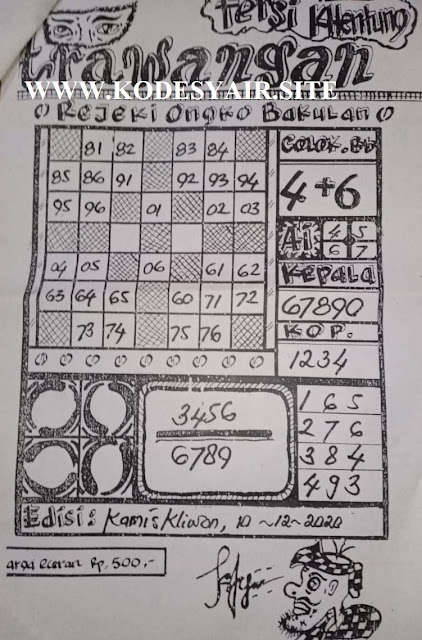 Versi Khentung
trawangan
WWW.KODESYAIR.SITE
Rejeki Ongko Bakulan
81 82 83 84
85 86 91 92 93 94
95 96 01 02 03
04 05 06 61 62
63 64 65 60 71 72
73 74 75 76
COLOK. BB
4+6
Ai 4 5
6 7
KEPALA
67890
KOP.
1234
3456
6789
1 6 5
2 7 6
3 8 4
4 9 3
Edisi: Kamis Kliwon, 10 ~12~2020
arga eceran Rp, 500.-